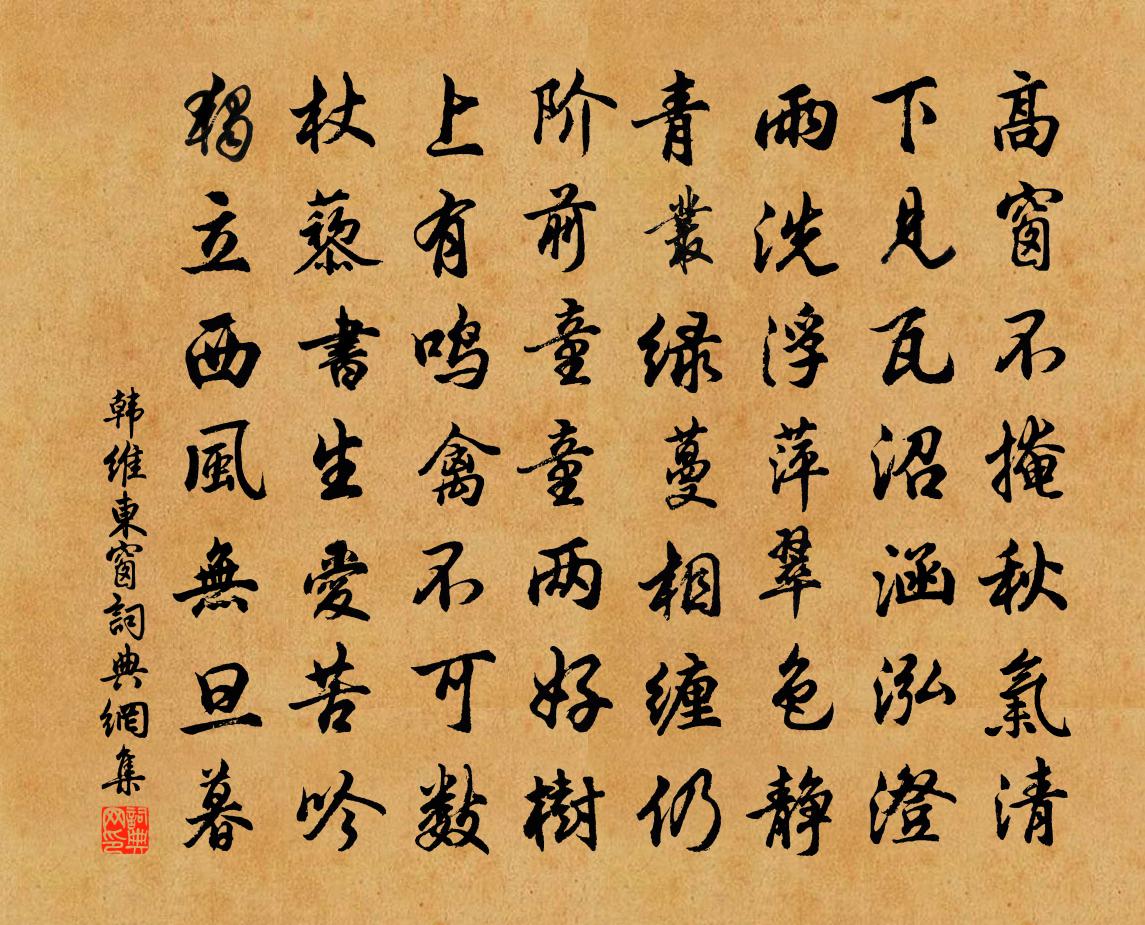 髙窗不掩秋氣清
下見瓦沼涵泓澄
雨洗浮萍翠色静
青叢緑蔓相缠仍
阶前童童两好樹
上有鸣禽不可数
杖藜書生愛苦吟
獨立西風無旦暮
韩維東窗詞典網集
詞典网印